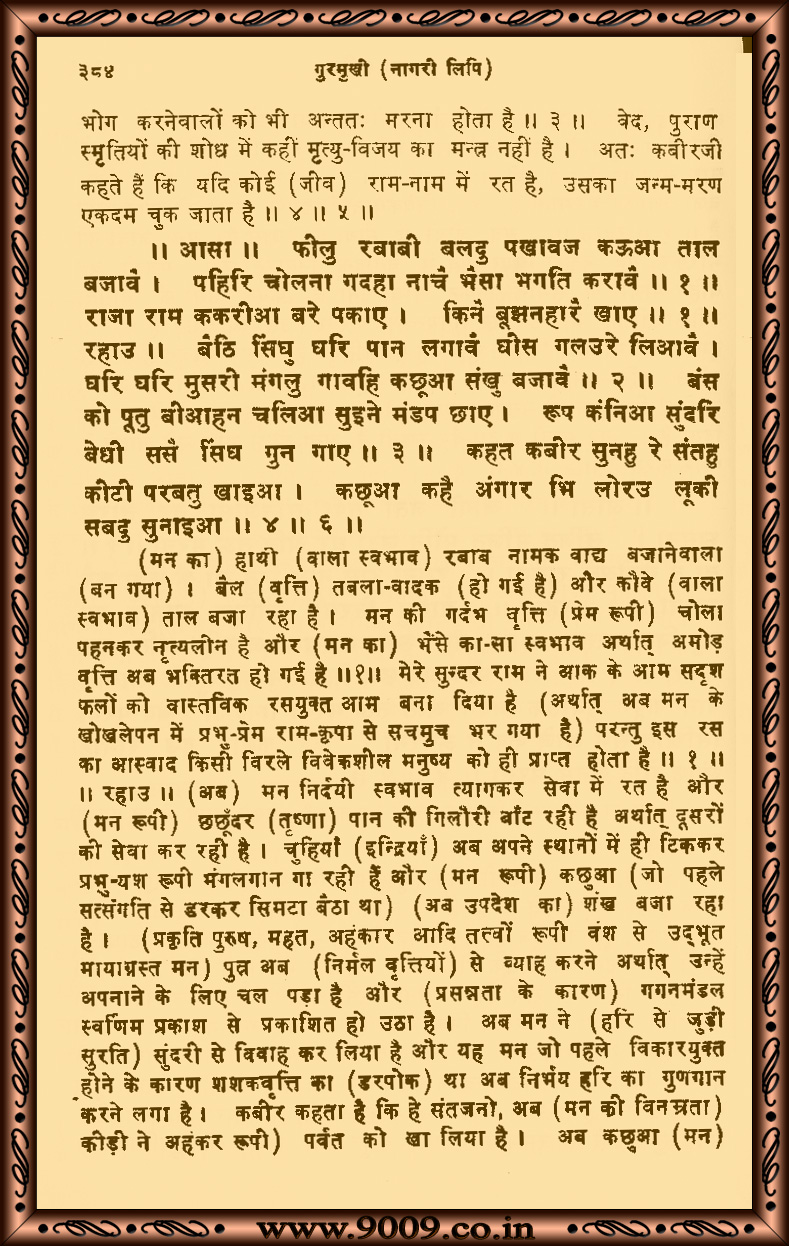 ३८४ गुरमुखी (नागरी लिपि)
भोग करनेवालों को भी अन्ततः मरना होता है ॥ ३ ॥ वेद, पुराण
स्मृतियों की शोध में कहीं मृत्यु-विजय का मन्त्र नहीं है । अतः कबीरजी
कहते हैं कि यदि कोई (जीव) राम-नाम में रत है, उसका जन्म-मरण
एकदम चुक जाता है ॥ ४ ॥ ५ ॥
॥ आसा ॥ फीलु रबाबी बलदु पखावज कऊआ ताल
बजावै । पहिरि चोलना गदहा नाचै भैसा भगति करावै ॥ १ ॥
राजा राम ककरीआ बरे पकाए । किनै बूझनहारै खाए ॥ १ ॥
रहाउ ॥ बैठि सिंघु घरि पान लगावै घीस गलउरे लिआवै ।
घरि घरि मुसरी मंगलु गावहि कछूआ संखु बजावै ॥ २ ॥ बंस
को पूतु बीआहन चलिआ सुइने मंडप छाए । रूप कंनिआ सुंदरि
बेधी ससै सिंघ गुन गाए ॥ ३ ॥ कहत कबीर सुनहु रे संतहु
कीटी परबतु खाइआ । कछूआ कहै अंगार भि लोरउ लूकी
सबदु सुनाइआ ॥ ४ ॥ ६ ॥
(मन का) हाथी (वाला स्वभाव) रबाब नामक वाद्य बजानेवाला
(बन गया) । बैल (वृत्ति) तबला-वादक (हो गई है) और कौवे (वाला
स्वभाव) ताल बजा रहा है । मन की गर्दभ वृत्ति (प्रेम रूपी) चोला
पहनकर नृत्यलीन है और (मन का) भैंसे का-सा स्वभाव अर्थात् अमोड़
वृत्ति अब भक्तिरत हो गई है ॥१॥ मेरे सुन्दर राम ने आक के आम सदृश
फलों को वास्तविक रसयुक्त आम बना दिया है (अर्थात् अब मन के
खोखलेपन में प्रभु-प्रेम राम-कृपा से सचमुच भर गया है) परन्तु इस रस
का आस्वाद किसी विरले विवेकशील मनुष्य को ही प्राप्त होता है ॥ १ ॥
॥ रहाउ ॥ (अब) मन निर्दयी स्वभाव त्यागकर सेवा में रत है और
(मन रूपी) छछूँदर (तृष्णा) पान की गिलौरी बाँट रही है अर्थात् दूसरों
की सेवा कर रही है । चुहियाँ (इन्द्रियाँ) अब अपने स्थानों में ही टिककर
प्रभु-यश रूपी मंगलगान गा रही हैं और (मन रूपी) कछुआ (जो पहले
सत्संगति से डरकर सिमटा बैठा था) (अब उपदेश का) शंख बजा रहा
है । (प्रकृति पुरुष, महत, अहंकार आदि तत्त्वों रूपी वंश से उद्भूत
मायाग्रस्त मन) पुत्र अब (निर्मल वृत्तियों) से व्याह करने अर्थात् उन्हें
अपनाने के लिए चल पड़ा है और (प्रसन्नता के कारण) गगनमंडल
स्वर्णिम प्रकाश से प्रकाशित हो उठा है । अब मन ने (हरि से जुड़ी
सुरति) सुंदरी से विवाह कर लिया है और यह मन जो पहले विकारयुक्त
होने के कारण शशकवृत्ति का (डरपोक) था अब निर्भय हरि का गुणगान
करने लगा है । कबीर कहता है कि हे संतजनो, अब (मन की विनम्रता)
कीड़ी ने अहंकर रूपी) पर्वत को खा लिया है । अब कछुआ (मन)
www.9009.co.in